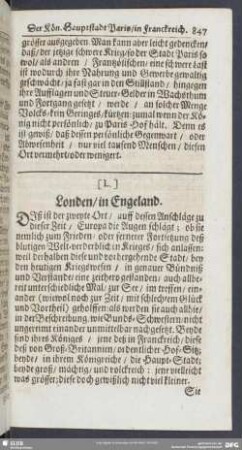 Der Kön. Hauptstadt Paris/in Franckreich. 847
grösser ausgegeben. Man kann aber leicht gedencken/
daß/ der jetzige schwere Krieg/ so der Stadt Paris so
wol/ als andern / Frantzösischen/ eine schwere Last
ist wodurch ihre Nahrung und Gewerbe gewaltig
geschwächt/ ja fast gar in den Stillstand/ hingegen
ihre Aufflagen und Steuer-Gelder in Wachsthum
und Fortgang gesetzt / werde / an solcher Menge
Volcks/ kein Geringes kürtzen: zumal wenn der Kö-
nig nicht persönlich/ zu Paris Hof hält. Denn es
ist gewiß/ daß dessen persönliche Gegenwart / oder
Abwesenheit / nur viel tausend Menschen / diesen
Ort vermehrt/ oder wenigert.
[L.]
Londen/ in Engeland.
Diß ist der zweyte Ort / auff dessen Anschläge zu
dieser Zeit / Europa die Augen schlägt; ob sie
nemlich zum Frieden/ oder fernerer Fortsetzung deß
blutigen Welt-verderblich in Krieges/ sich anlassen:
weil derhalben diese und vorhergehende Stadt/ bey
den heutigen Kriegswesen / in genauer Bündniß
und Verstande/ eine zeithero gestanden/ auch allbe-
reit unterschiedliche Mal/ zur See/ im treffen/ ein-
ander (wiewol nach zur Zeit/ mit schlechtem Glück
und Vortheil) geholffen: als werden sie auch allhie/
in der Beschreibung/ wie Bunds-Schwestern/ nicht
ungereimt einander unmittelbar nachgesetzt. Beyde
sind ihres Königes / jene deß in Franckreich/ diese
deß von Groß-Britannien/ ordentlicher Hof-Sitz;
beyde / in ihrem Königreiche/ die Haupt-Stadt;
beyde groß/ mächtig/ und volckreich: jene vielleicht
was grösser; diese doch gewißlich nicht viel kleiner.
Sie
SLUB